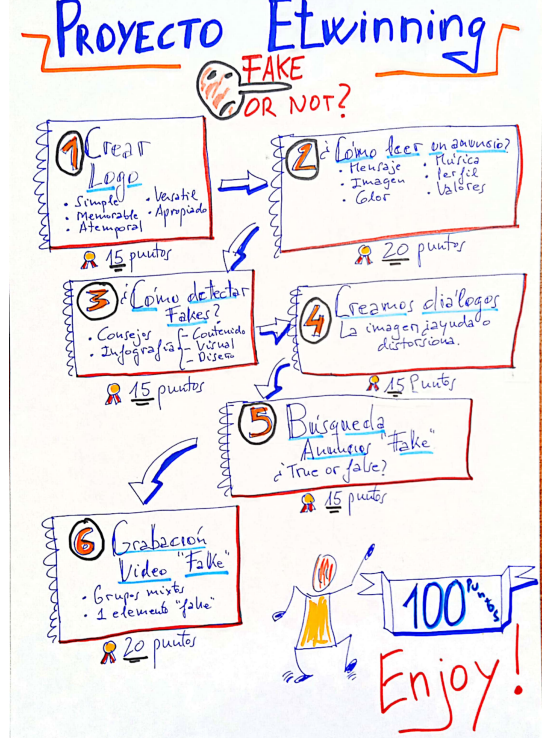 PROYECTO ETwinning
FAKE
OR NOT?
1 Crear
Logo
• Simple
• Memorable
• Atemporal
• Versatil
• Apropiado
15 puntos
2 ¿Cómo leer un anuncio?
• Mensaje
• Imagen
• Color
• Música
• Perfil
• Valores
20 puntos
3 ¿Cómo detectar
Fakes?
• Consejos
• Infografía
- Contenido
- Visual
- Diseño
15 puntos
4 Creamos diálogos
La imagen ¿ayuda o
distorsiona.
15 Puntos
5 Búsqueda
Anuncios "Fake"
¿True or false?
15 puntos
6 Grabación
Video "Fake"
• Grupos mixtos
• 1 elemento "fake"
20 puntos
100 Puntos
Enjoy!